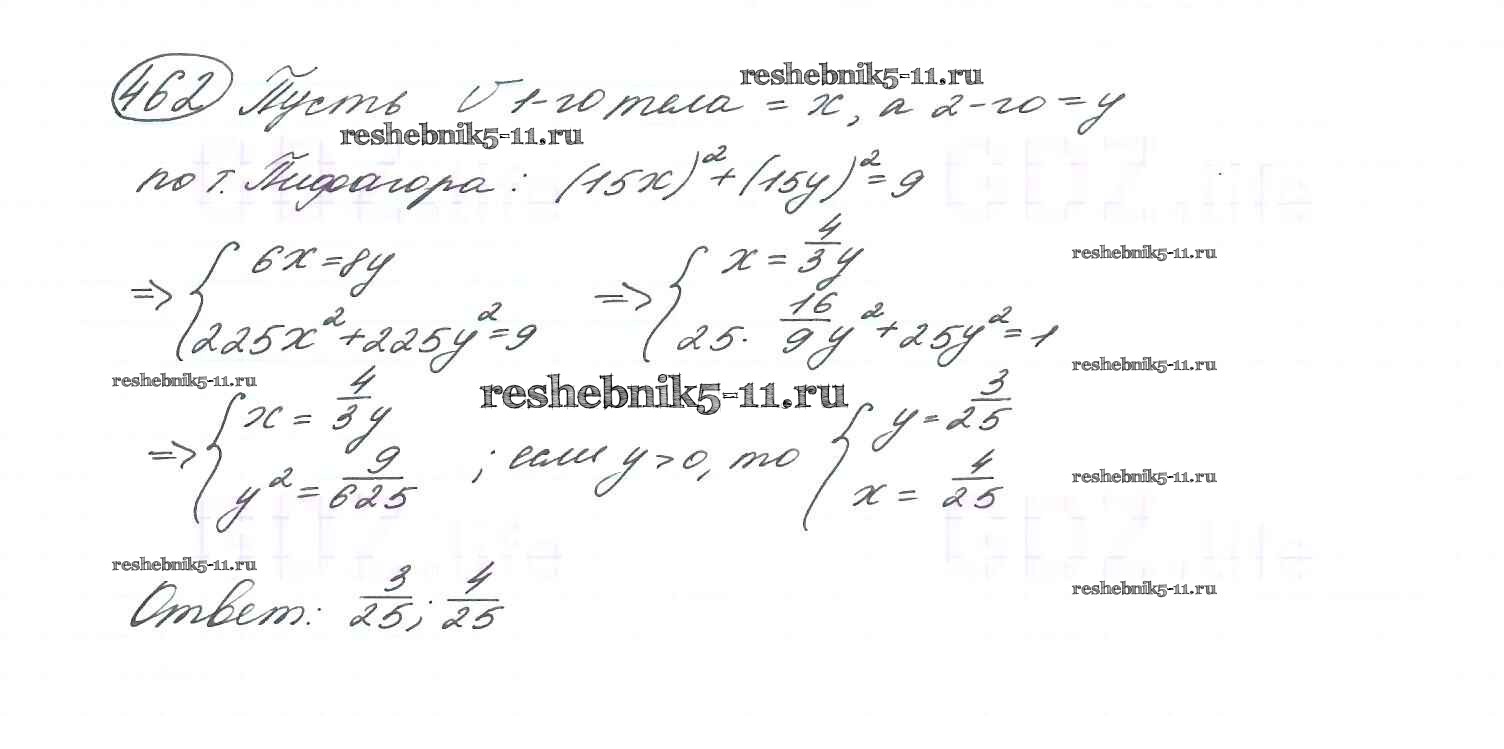 462 Пусть V 1-го тела = x, а 2-го = y
reshebnik5-11.ru
reshebnik5-11.ru
по т. Пифагора: (15x)² + (15y)² = 9
GDZ.life GDZ.life
=> { 6x = 8y => { x = 4/3 y
225x² + 225y² = 9 25 · 16/9 y² + 25y² = 1
reshebnik5-11.ru
reshebnik5-11.ru
reshebnik5-11.ru
reshebnik5-11.ru
=> { x = 4/3 y ; если y > 0, то { y = 3/25
y² = 9/625 x = 4/25
reshebnik5-11.ru
GDZ.life GDZ.life
reshebnik5-11.ru
reshebnik5-11.ru
Ответ: 3/25; 4/25